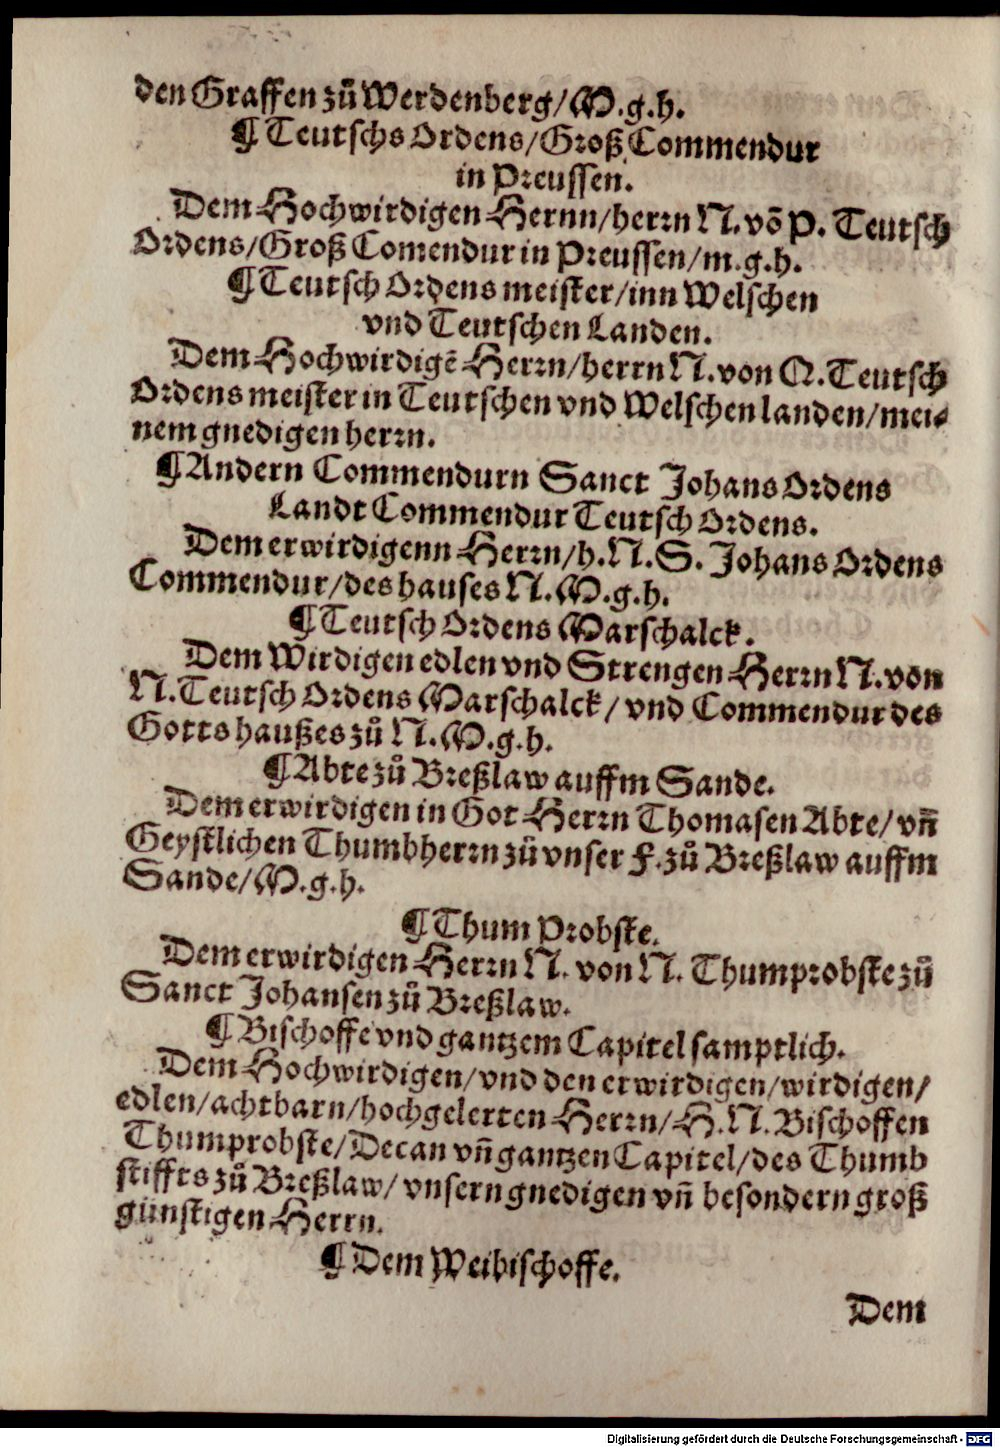 den Graffen zů Werdenberg/M.g.h.
¶ Teutschs Ordens/Groß Commendur
in Preussen.
Dem Hochwirdigen Hernn/herrn N.võ P. Teutsch
Ordens/Groß Comendur in Preussen/m.g.h.
¶ Teutsch Ordens meister/inn Welschen
vnd Teutschen Landen.
Dem Hochwirdigẽ Herrn/herrn N.von N.Teutsch
Ordens meister in Teutschen vnd Welschen landen/mei-
nem gnedigen herrn.
¶ Andern Commendurn Sanct Johans Ordens
Landt Commendur Teutsch Ordens.
Dem erwirdigenn Herrn/h.N.S. Johans Ordens
Commendur/des hauses N.M.g.h.
¶ Teutsch Ordens Marschalck.
Dem Wirdigen edlen vnd Strengen Herrn N.von
N.Teutsch Ordens Marschalck/ vnd Commendur des
Gotts haußes zů N.M.g.h.
¶ Abte zů Breßlaw auffm Sande.
Dem erwirdigen in Got Herrn Thomasen Abte/ vñ
Geystlichen Thumbherrn zů vnser F.zů Breßlaw auffm
Sande/M.g.h.
¶ Thum Probste.
Dem erwirdigen Herrn N. von N. Thumprobste zů
Sanct Johansen zů Breßlaw.
¶ Bischoffe vnd gantzem Capitel samptlich.
Dem Hochwirdigen/vnd den erwirdigen/wirdigen/
edlen/achtbarn/hochgelerten Herrn/H.N.Bischoffen
Thumprobste/Decan vñ gantzen Capitel/des Thumb
stiffts zů Breßlaw/ vnsern gnedigen vñ besondern groß
günstigen Herrn.
¶ Dem Weibischoffe.
Dem
Digitalisierung gefördert durch die Deutsche Forschungsgemeinschaft - DFG